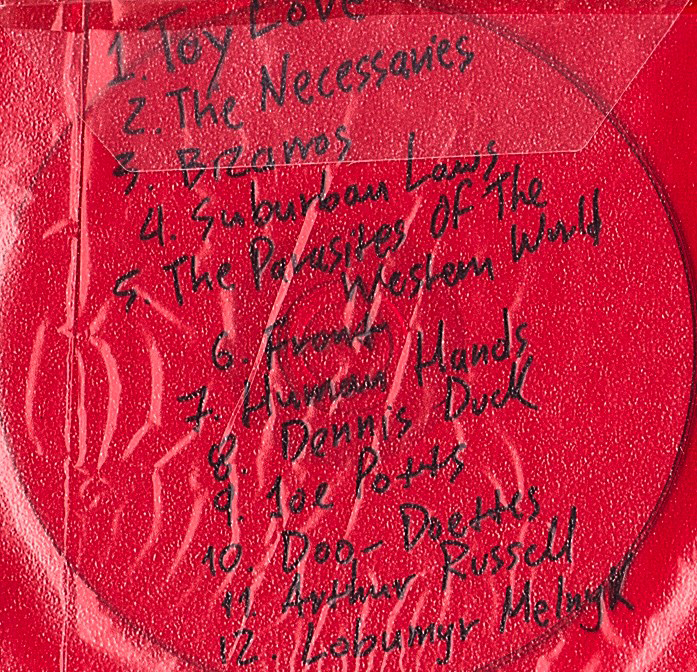 1. Toy Love
2. The Necessaries
3. Bizarros
4. Suburban Lawns
5. The Parasites Of The
Western World
6. Front
7. Human Hands
8. Dennis Duck
9. Joe Potts
10. Doo-Doettes
11. Arthur Russell
12. Lobumyr Melnyk